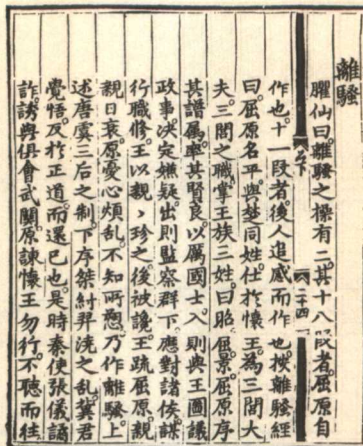 離騷
臞仙曰。離騷之操有二。其十八段者。屈原自
作也。十一段者。後人追感而作也。按離騷經
曰。屈原名平。與楚同姓。仕於懷王。為三閭大
夫。三閭之職。掌王族三姓。曰昭屈景。屈原序
其譜属。率其賢良。以厲國士。入則與王圖議
政事。決定嫌疑。出則監察群下。應對諸侯。謀
行職修。王以親〻珍之。後被讒。王疏屈原。親
親日衰。原憂心煩乱。不知所愬。乃作離騷。上
述唐虞三后之制。下序桀紂羿澆之乱。冀君
覺悟。反於正道。而還已也。是時秦使張儀譎
詐。誘與俱會武關。原諫懷王勿行。不聽而往